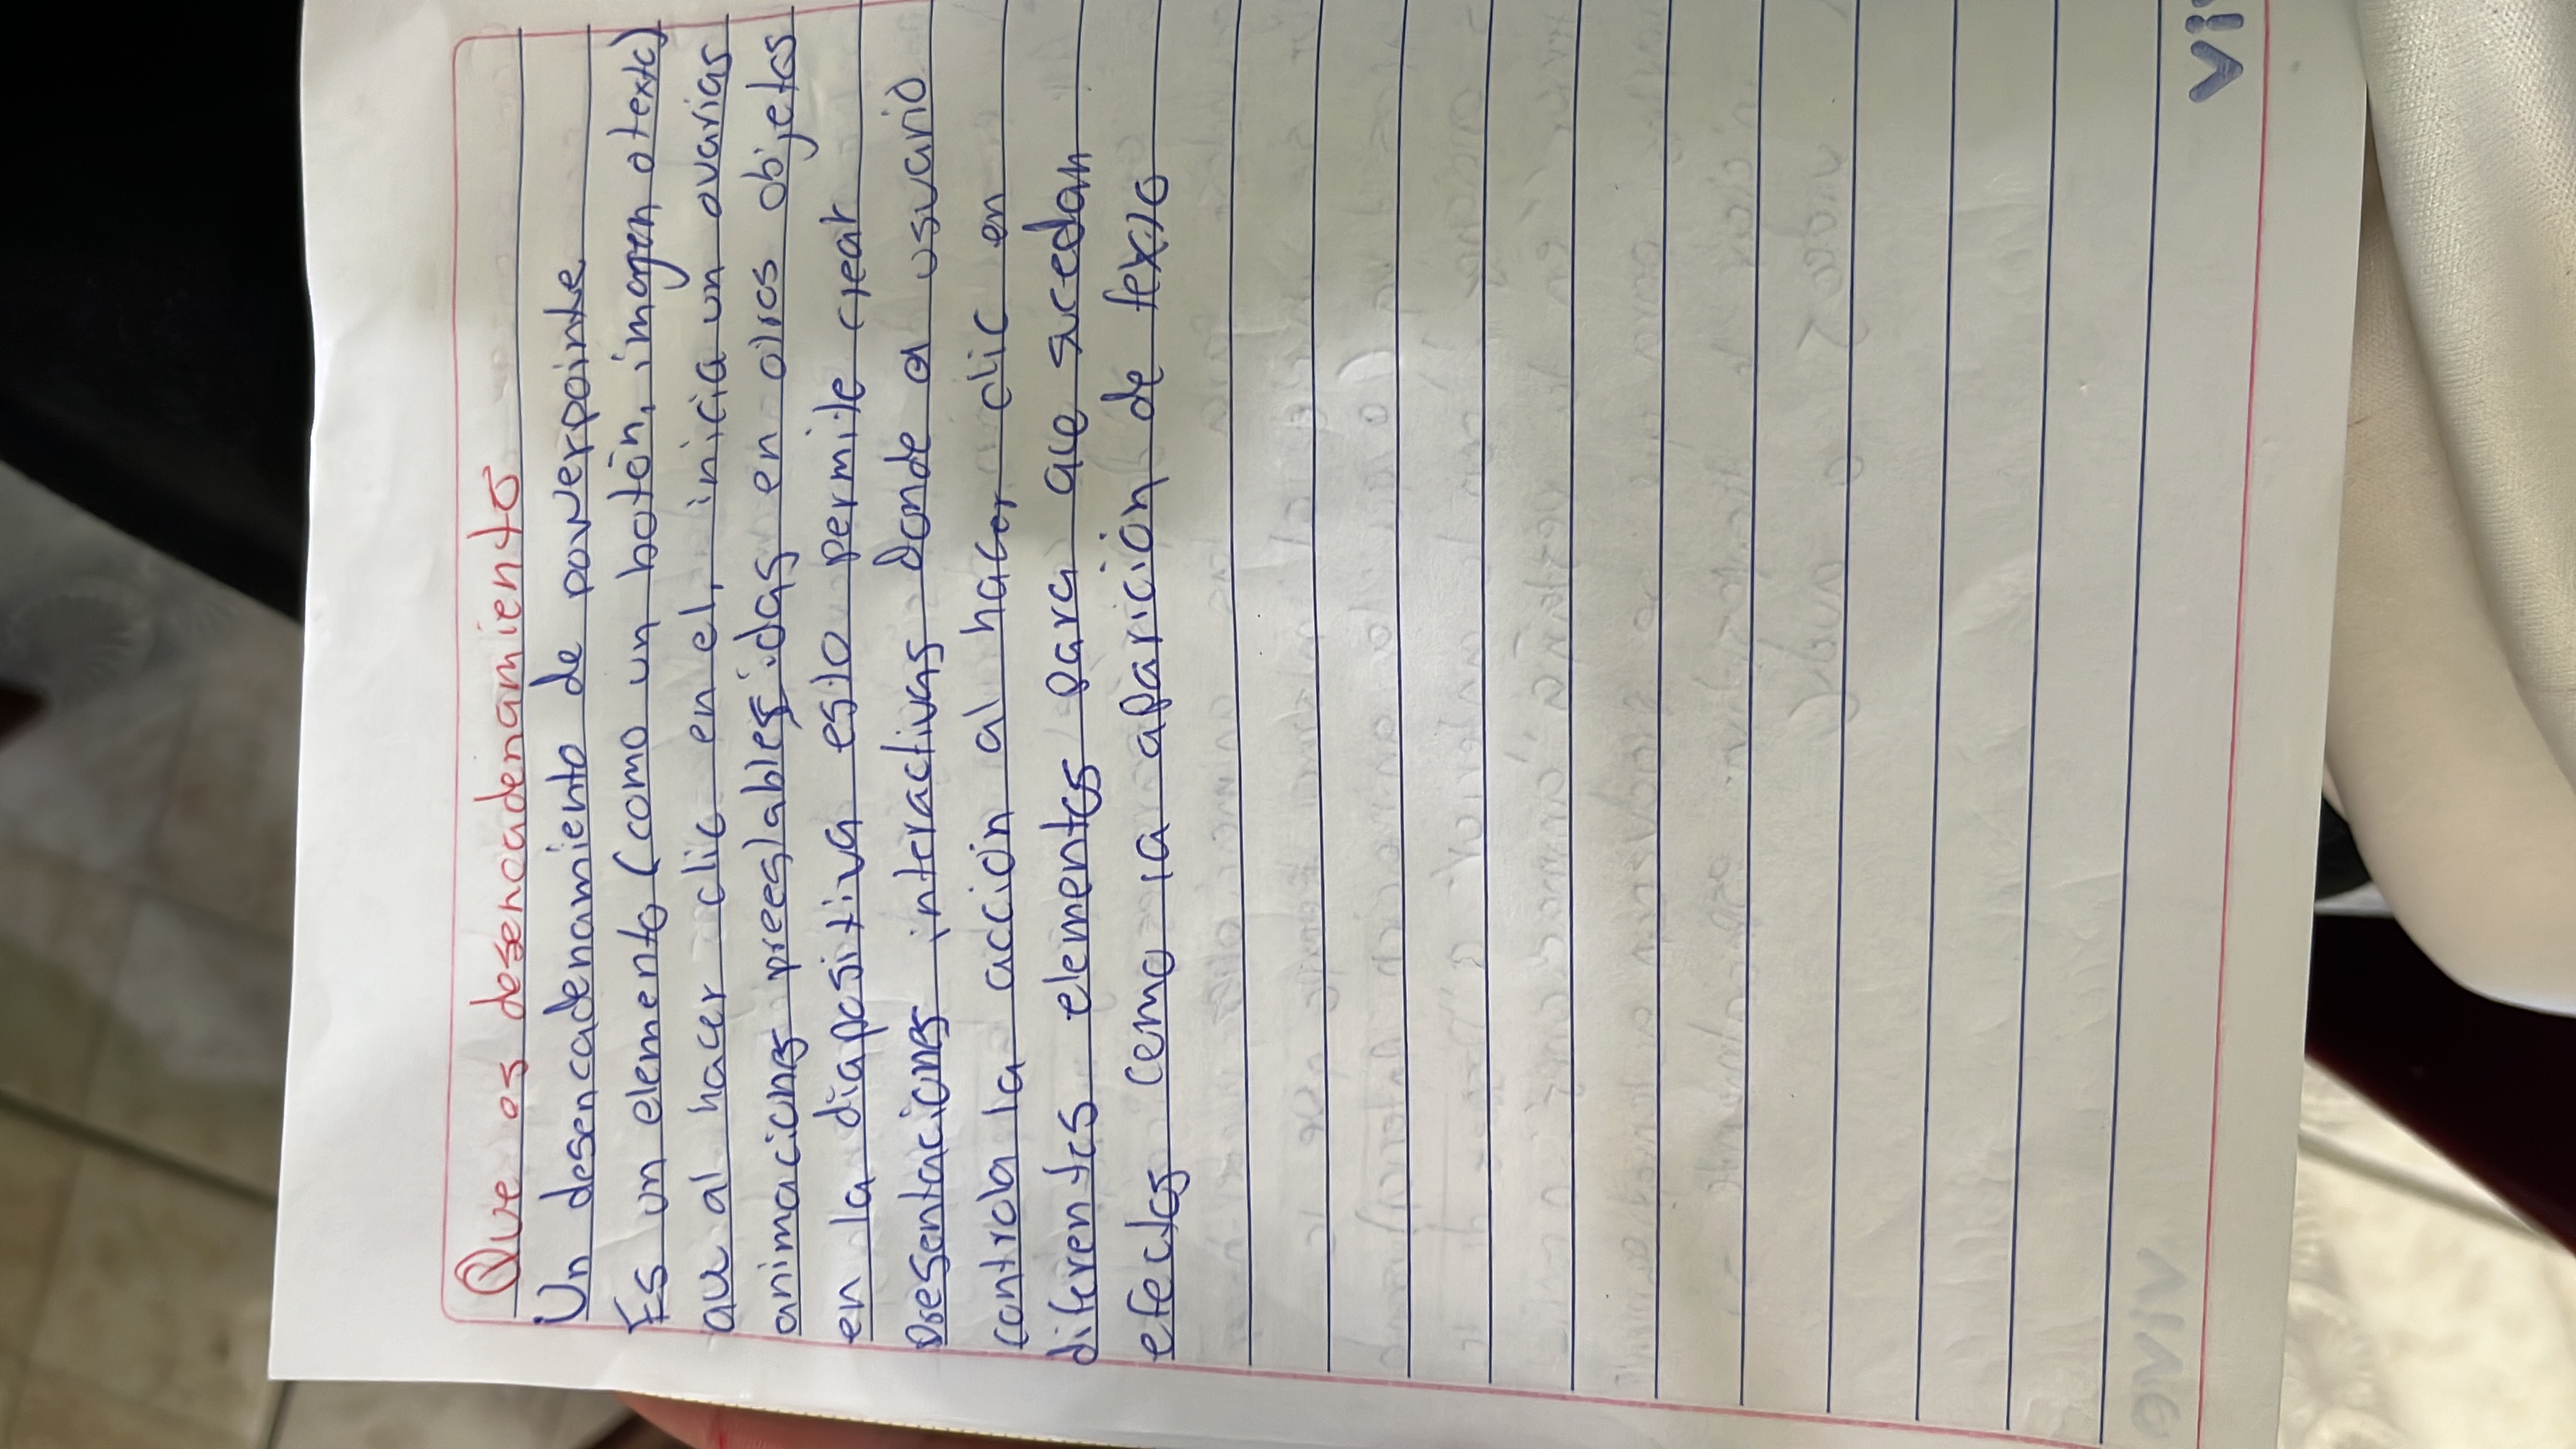 Que es desencadenamiento
Un desencadenamiento de powerpointe
Es un elemento (como un botón, imagen o texto)
que al hacer clic en el, inicia un o varias
animaciones preestablesidas en otros objetos
en la diapositiva esto permite crear
presentaciones interactivas donde el usuario
controla la acción al hacer clic en
diferentes elementos para que sucedan
efectos como la aparición de texto
vi